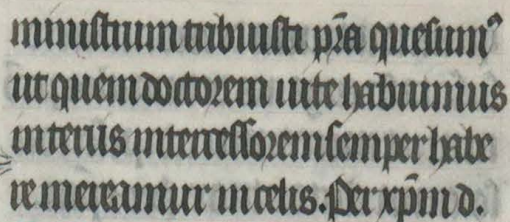 ministrum tribuisti p̃ra quesumꝰ
ut quem doctorem uite habuimus
in terris intercessorem semper habe
re mereamur in celis. Per xp̄m d.